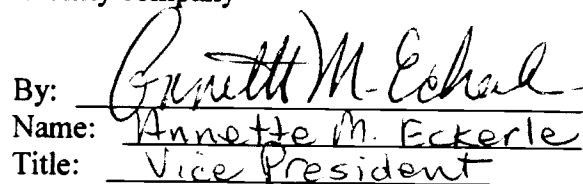 By: Annette M. Eckerle
Name: Annette M. Eckerle
Title: Vice President